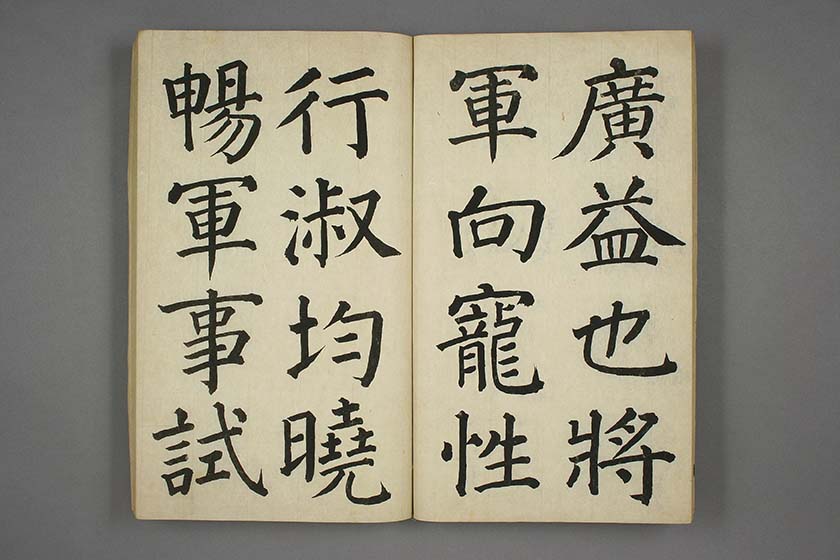 廣益也將
軍向寵性
行淑均曉
暢軍事試